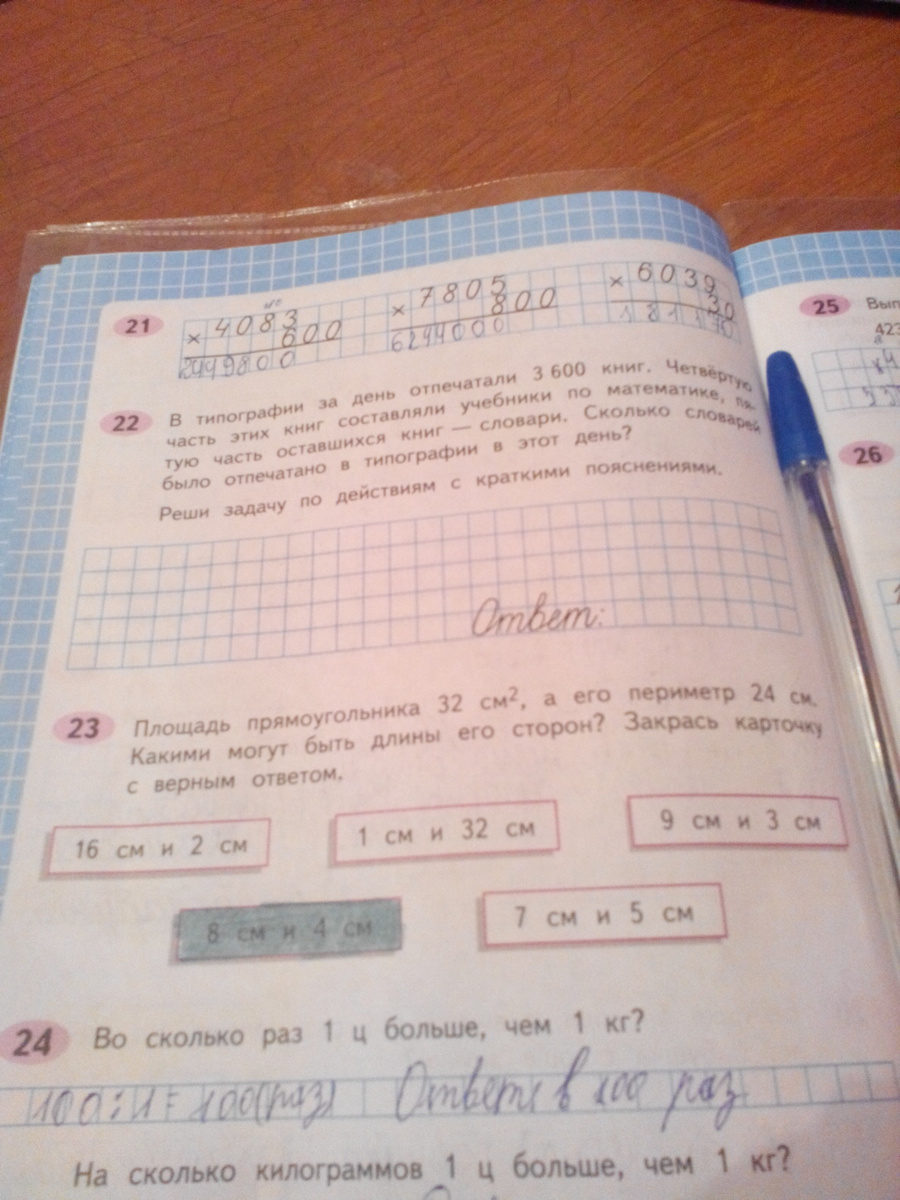 21
× 4083 × 7805 × 6039
600 800 30
2449800 6244000 181170
22 В типографии за день отпечатали 3 600 книг. Четвёртую
часть этих книг составляли учебники по математике, пя-
тую часть оставшихся книг — словари. Сколько словарей
было отпечатано в типографии в этот день?
Реши задачу по действиям с краткими пояснениями.
Ответ:
23 Площадь прямоугольника 32 см², а его периметр 24 см.
Какими могут быть длины его сторон? Закрась карточку
с верным ответом.
16 см и 2 см 1 см и 32 см 9 см и 3 см
8 см и 4 см 7 см и 5 см
24 Во сколько раз 1 ц больше, чем 1 кг?
100:1= 100(раз) Ответ: в 100 раз
На сколько килограммов 1 ц больше, чем 1 кг?
25
423
26